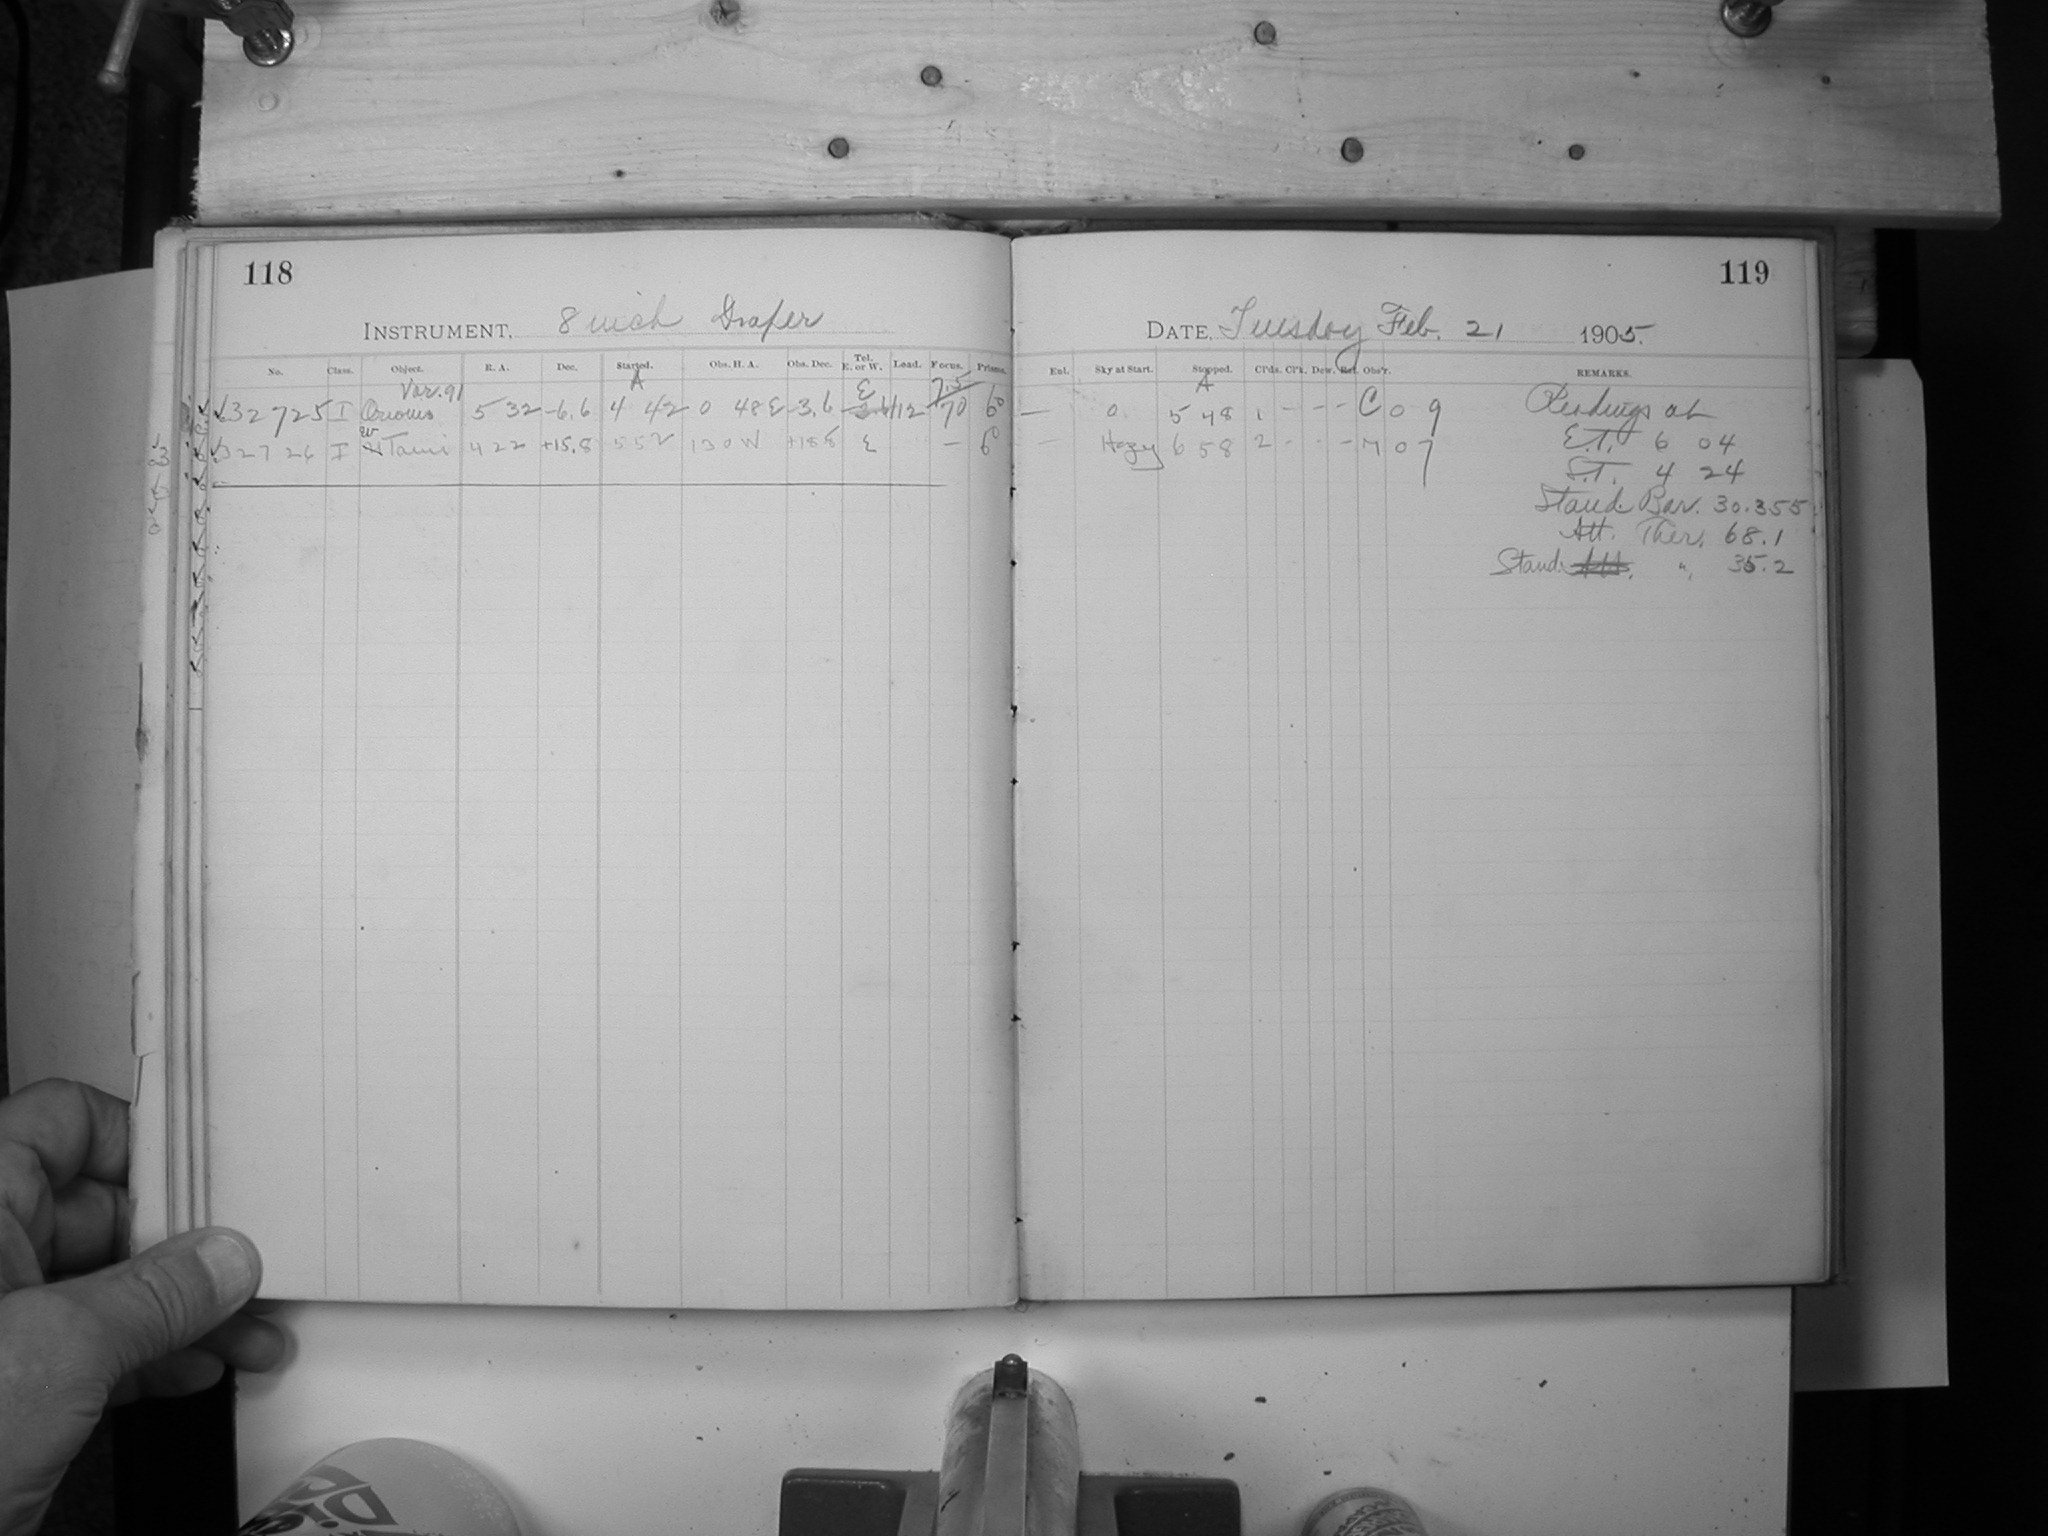 118
INSTRUMENT, 8 inch Draper
No. Class. Object. R. A. Dec. Started. Obs. H. A. Obs. Dec. Tel. E. or W. Load. Focus. Prisms.
A
Var. 91 E 7.5
32725 I Orionis 5 32 -6.6 4 42 0 48 E -3.6 112 70 60
W
32726 I Tauri 4 22 +15.8 5 52 1 30 W +18.8 E — 60
119
DATE, Tuesday Feb. 21 1905.
Enl. Sky at Start. Stopped. Cl'ds. Cl'k. Dew. Ref. Obs'r. REMARKS.
A
— 0 5 48 1 - - - C 0 9 Readings at
— Hazy 6 58 2 - - - 7 0 7 E.T. 6 04
S.T. 4 24
Stand. Bar. 30.355
Att. Ther. 68.1
Stand. Att. " 35.2